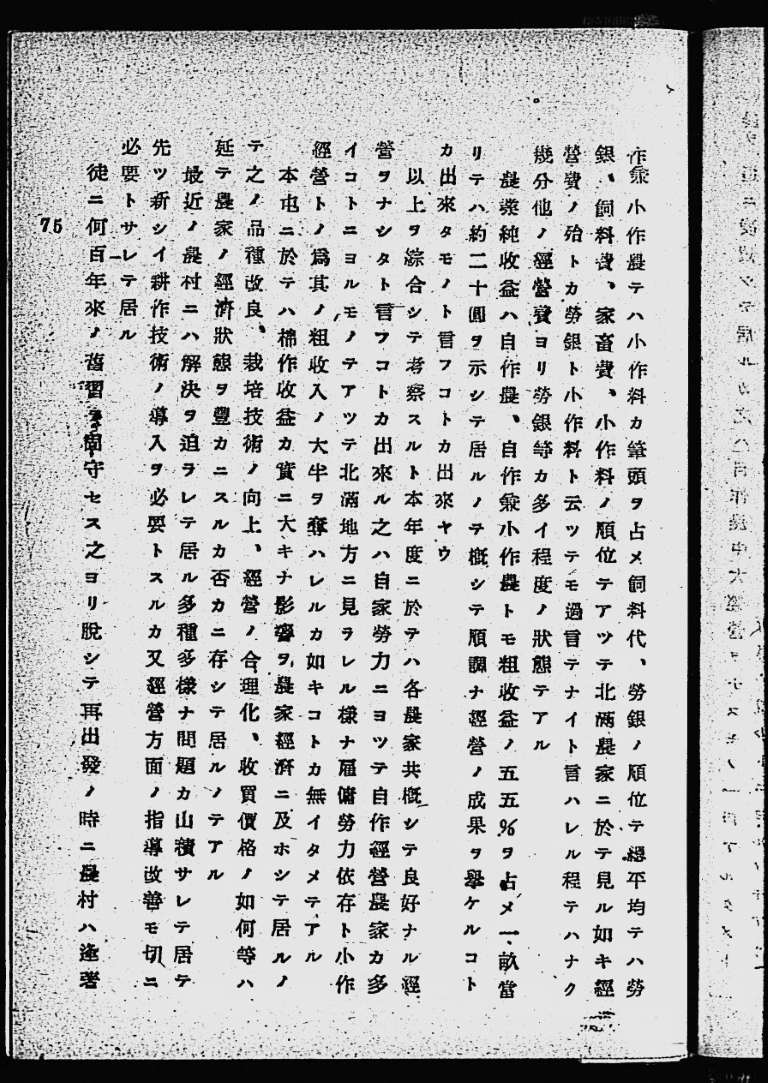 作兼小作農テハ小作料カ筆頭ヲ占メ飼料代、勞銀ノ順位テ總平均テハ勞
銀、飼料費、家畜費、小作料ノ順位テアツテ北滿農家ニ於テ見ル如キ經
營費ノ殆トカ勞銀ト小作料ト云ツテモ過言テナイト言ハレル程テハナク
幾分他ノ經營費ヨリ勞銀等カ多イ程度ノ狀態テアル
農業純收益ハ自作農、自作兼小作農トモ粗收益ノ五五%ヲ占メ一、畝當
リテハ約二十圓ヲ示シテ居ルノテ槪シテ順調ナ經營ノ成果ヲ擧ケルコト
カ出來タモノト言フコトカ出來ヤウ
以上ヲ綜合シテ考察スルト本年度ニ於テハ各農家共槪シテ良好ナル經
營ヲナシタト言フコトカ出來ル之ハ自家勞力ニヨツテ自作經營農家カ多
イコトニヨルモノテアツテ北滿地方ニ見ラレル樣ナ雇傭勞力依存ト小作
經營トノ爲其ノ粗收入ノ大半ヲ奪ハレルカ如キコトカ無イタメテアル
本屯ニ於テハ棉作收益カ實ニ大キナ影響ヲ農家經濟ニ及ホシテ居ルノ
テ之ノ品種改良、栽培技術ノ向上、經營ノ合理化、收買價格ノ如何等ハ
延テ農家ノ經濟狀態ヲ豐カニスルカ否カニ存シテ居ルノテアル
最近ノ農村ニハ解決ヲ迫ラレテ居ル多種多樣ナ問題カ山積サレテ居テ
先ツ新シイ耕作技術ノ導入ヲ必要トスルカ又經營方面ノ指導改善モ切ニ
必要トサレテ居ル
徒ニ何百年來ノ舊習ヲ固守セス之ヨリ脫シテ再出發ノ時ニ農村ハ逢著
75